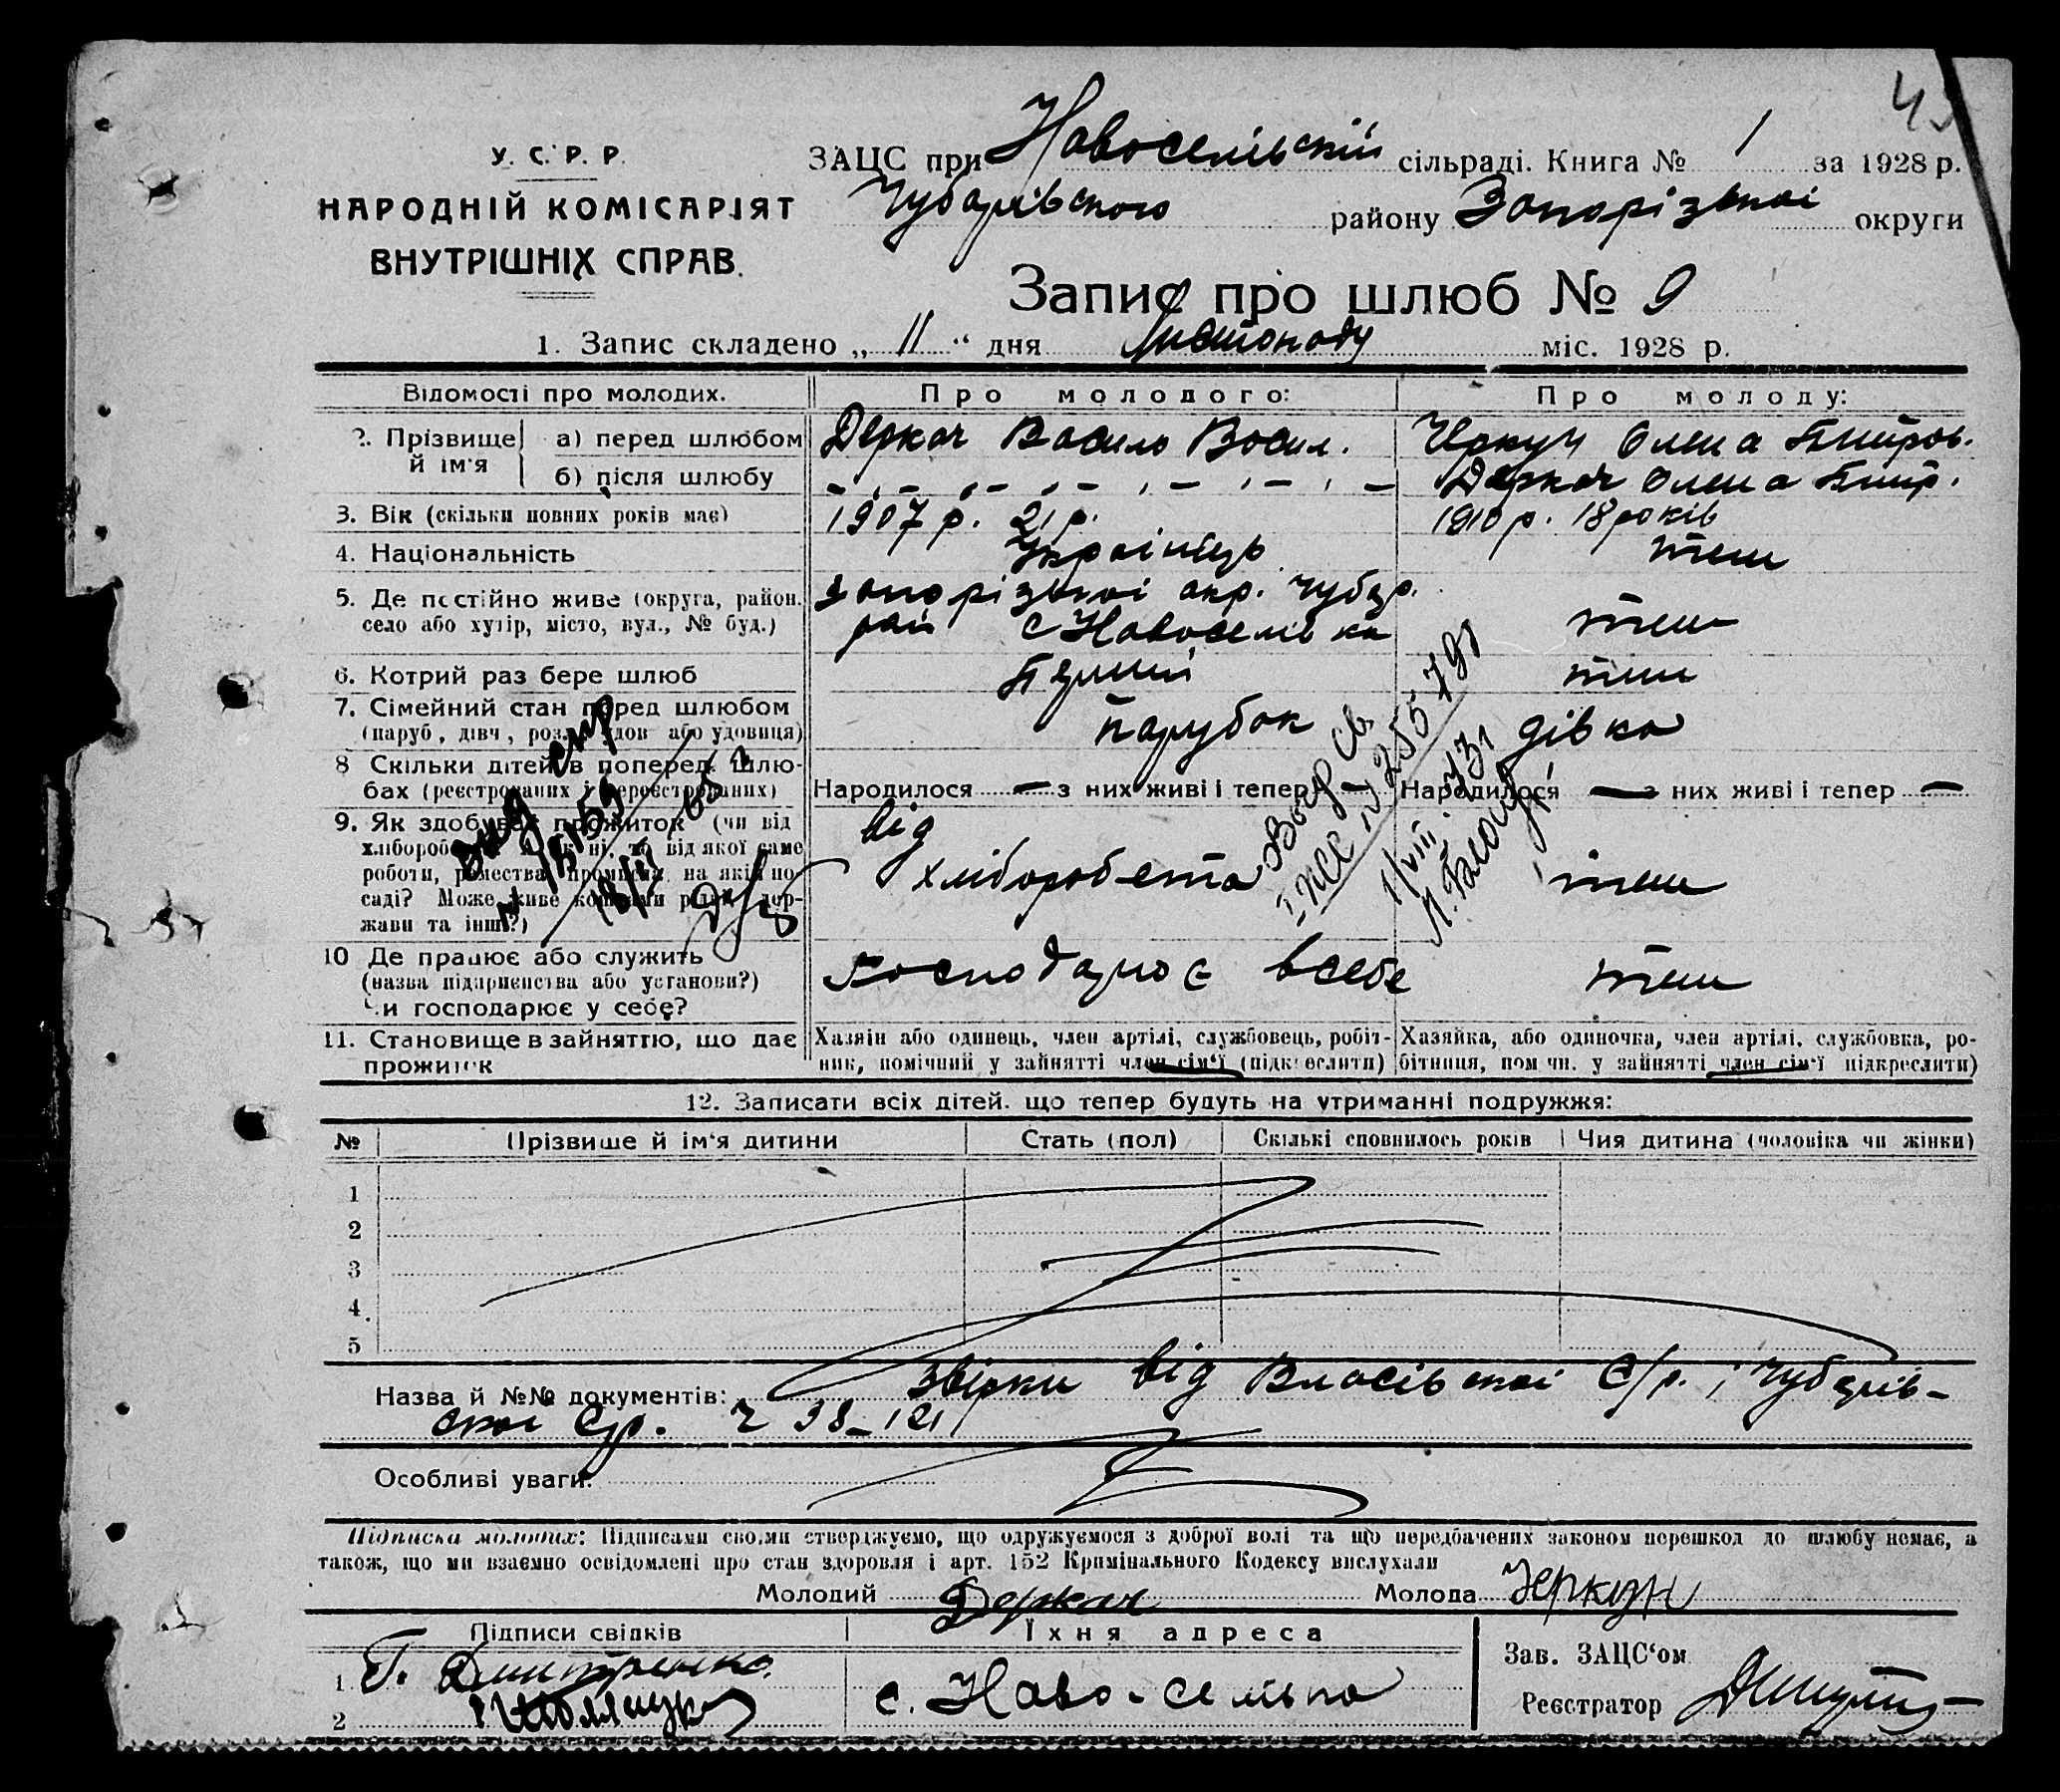 45
У. С. Р. Р.
НАРОДНІЙ КОМІСАРІЯТ
ВНУТРІШНІХ СПРАВ.
ЗАЦС при Новосельській сільраді. Книга № 1 за 1928 р.
Чубарівського району Запорізької округи
Запис про шлюб № 9
1. Запис складено „ 11 “ дня Листопаду міс. 1928 р.
Відомості про молодих. Про молодого: Про молоду:
2. Прізвище й ім'я а) перед шлюбом Деркач Василь Васил. Черкун Олена Дмитров.
б) після шлюбу Деркач Олена Дмитр.
3. Вік (скільки повних років має) 1907 р. 21 р. 1910 р. 18 років
4. Національність Українець теж
5. Де постійно живе (округа, район, Запорізької окр. Чубар.
село або хутір, місто, вул., № буд.) рай с Новоселівка теж
6. Котрий раз бере шлюб Перший теж
7. Сімейний стан перед шлюбом
(паруб, дівч, роз. вдов або удовиця) парубок дівка
8 Скільки дітей в поперед. шлю-
бах (реєстрованих і нереєстрованих) Народилося — з них живі і тепер — Народилося — з них живі і тепер —
9. Як здобуває прожиток (чи від
хлібороб
роботи, ремества, на якій по-
саді? Може живе
жави та інш?)
від
хліборобства теж
I ЖС № 255791
1/VIII. 73
10 Де працює або служить
(назва підприємства або установи?)
Чи господарює у себе?
господарює всебе теж
11. Становище в зайняттю, що дає
прожиток
Хазяїн або одинець, член артілі, службовець, робіт-
ник, помічний у зайнятті член сім'ї (підкреслити)
Хазяйка, або одиночка, член артілі, службовка, ро-
бітниця, помічн. у зайнятті член сім'ї підкреслити)
12. Записати всіх дітей. що тепер будуть на утриманні подружжя:
№ Прізвище й ім'я дитини Стать (пол) Скількі сповнилось років Чия дитина (чоловіка чи жінки)
1
2
3
4.
5
Назва й №№ документів: Звірки від Власівської С/р. і Чубарів-
ської С/р. 38-121
Особливі уваги:
Підписка молодих: Підписами своїми стверджуємо, що одружуємося з доброї волі та що передбачених законом перешкод до шлюбу немає, а
також, що ми взаємно освідомлені про стан здоровля і арт. 152 Кримінального Кодексу вислухали
Молодий Деркач Молода Черкун
Підписи свідків Їхня адреса
Зав. ЗАЦС'ом
1. Г. Дмитренко
с. Ново-Селівка
Реєстратор
2